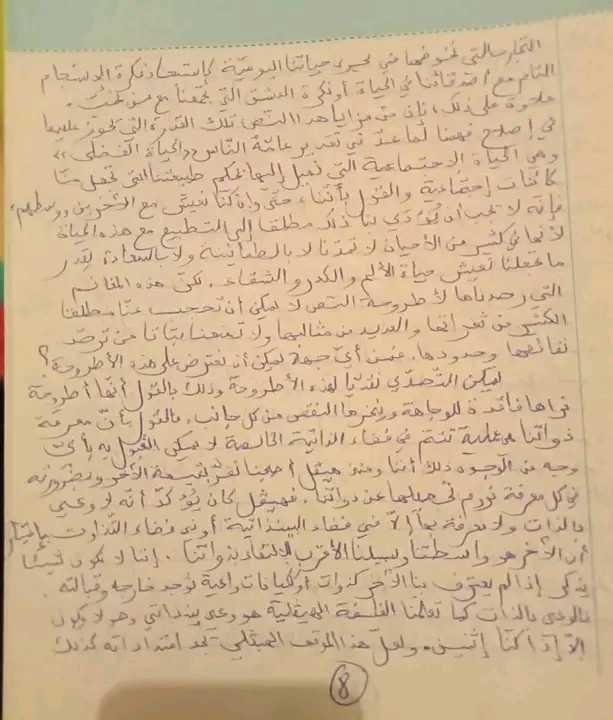 التجارب التي نخوضها في مجرى حياتنا اليومية كاستبعاد فكرة الانسجام
التام مع أصدقائنا في الحياة أو فكرة العشق التي تجمعنا مع من نحب.
علاوة على ذلك، فإن من مزايا هذا النص تلك القدرة التي يحوز عليها
في إصلاح فهمنا لما عدّ في تقدير عامة الناس «الحياة الفضلى»
وهي الحياة الاجتماعية التي نميل إليها بحكم طبيعتنا التي تجعل منا
كائنات إجتماعية والقول بأننا، حتى وإن كنا نعيش مع الآخرين ووسطهم،
فإنه لا يجب أن يؤدي بنا ذلك مطلقا إلى التطبيع مع هذه الحياة
لأنها في كثير من الأحيان لا تمدنا لا بالطمأنينة ولا بالسعادة بقدر
ما تجعلنا نعيش حياة الألم والكدر والشقاء. لكن هذه المغانم
التي رصدناها لأطروحة النص لا يمكن أن تحجب عنا مطلقا
الكثير من ثغراتها والعديد من مثالبها ولا تمنعنا بتاتا من ترصّد
نقائصها وحدودها. فمن أيّ جهة يمكن أن نعترض على هذه الأطروحة؟
يمكن التصدّي نقديا لهذه الأطروحة وذلك بالقول أنها أطروحة
نراها فاقدة للوجاهة وينخرها النقص من كل جانب، فالقول بأن معرفة
ذواتنا هي عملية تتم في فضاء الذاتية الخالصة لا يمكن القبول به بأي
وجه من الوجوه ذلك أننا ومنذ هيقل أصبحنا نقرّ بقيمة الآخر وبضرورته
في كل معرفة نروم تحصيلها عن ذواتنا. فهيقل كان يؤكد أنه لا وعي
بالذات ولا معرفة بها إلا في فضاء البينذاتية أو في فضاء الذوات بإعتبار
أن الآخر هو واسطتنا وسبيلنا الأقرب للإلتقاء بذواتنا. إننا لا نكون شيئا
يذكر إذا لم يعترف بنا الآخر كذوات أو ككيانات واعية توجد خارجه وقبالته.
فالوعي بالذات كما تعلمنا الفلسفة الهيقلية هو وعي بينذاتي وهو لا يكون
إلا إذا كنا إثنين. ولعل هذا الموقف الهيقلي يجد امتداداته كذلك
8